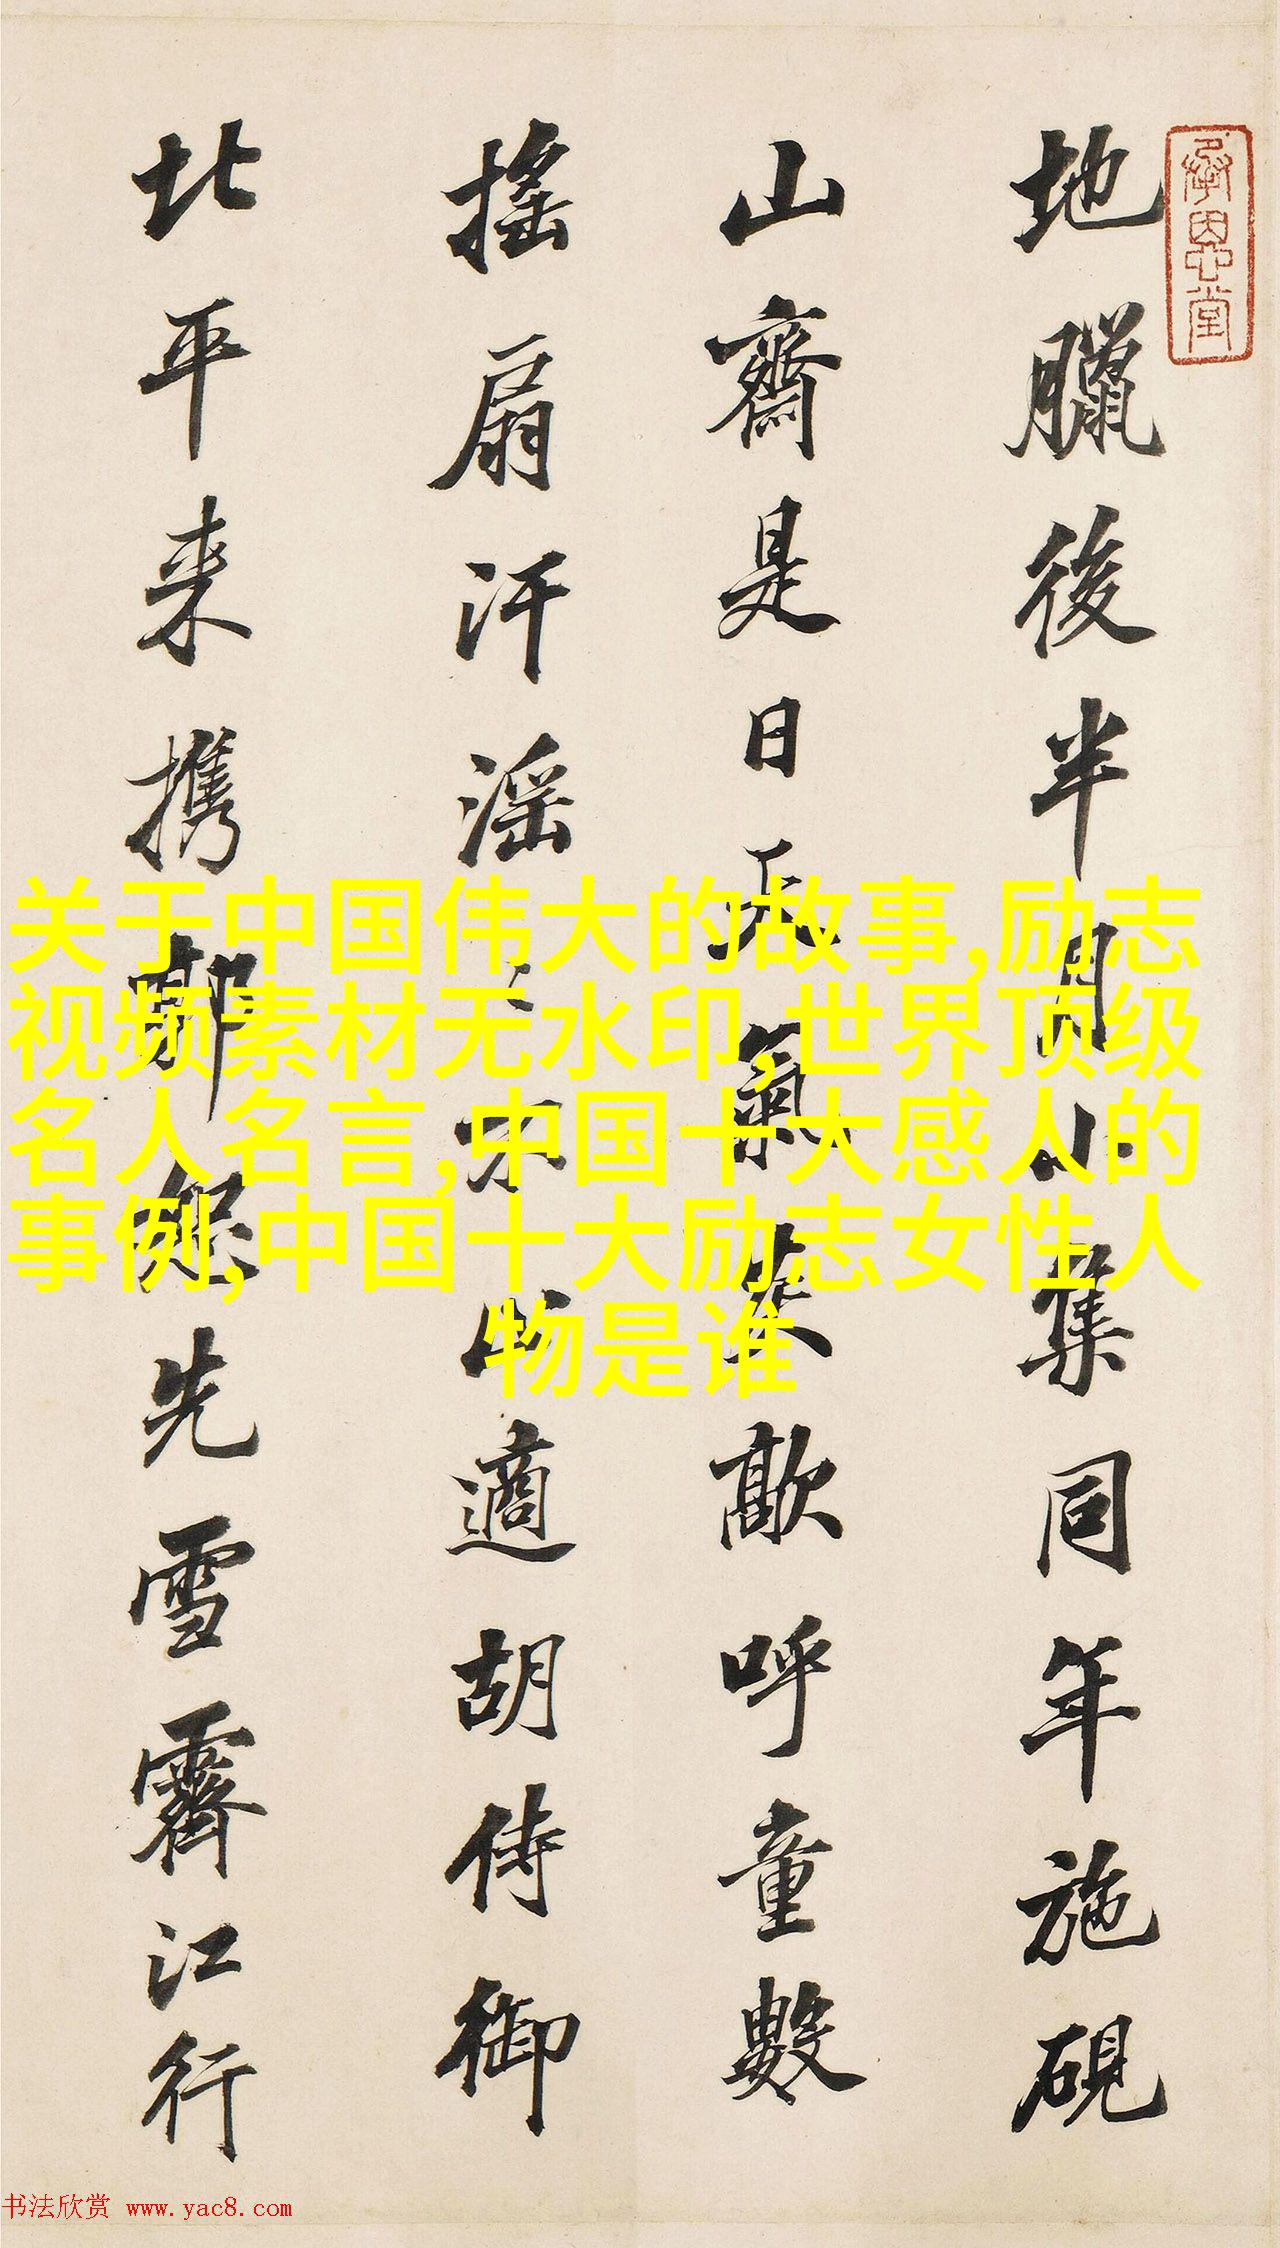 承恩堂
地臘後半月小集同年施硯
山齋是日天氣蒸歊呼童數
搖扇汗滛〻不止適胡侍御
北平来携郭恕先雪霽江行
关于中国伟大的故事,励志
视频素材无水印,世界顶级
名人名言,中国十大感人的
事例,中国十大励志女性人
物是谁
书法欣赏 www.yac8.com